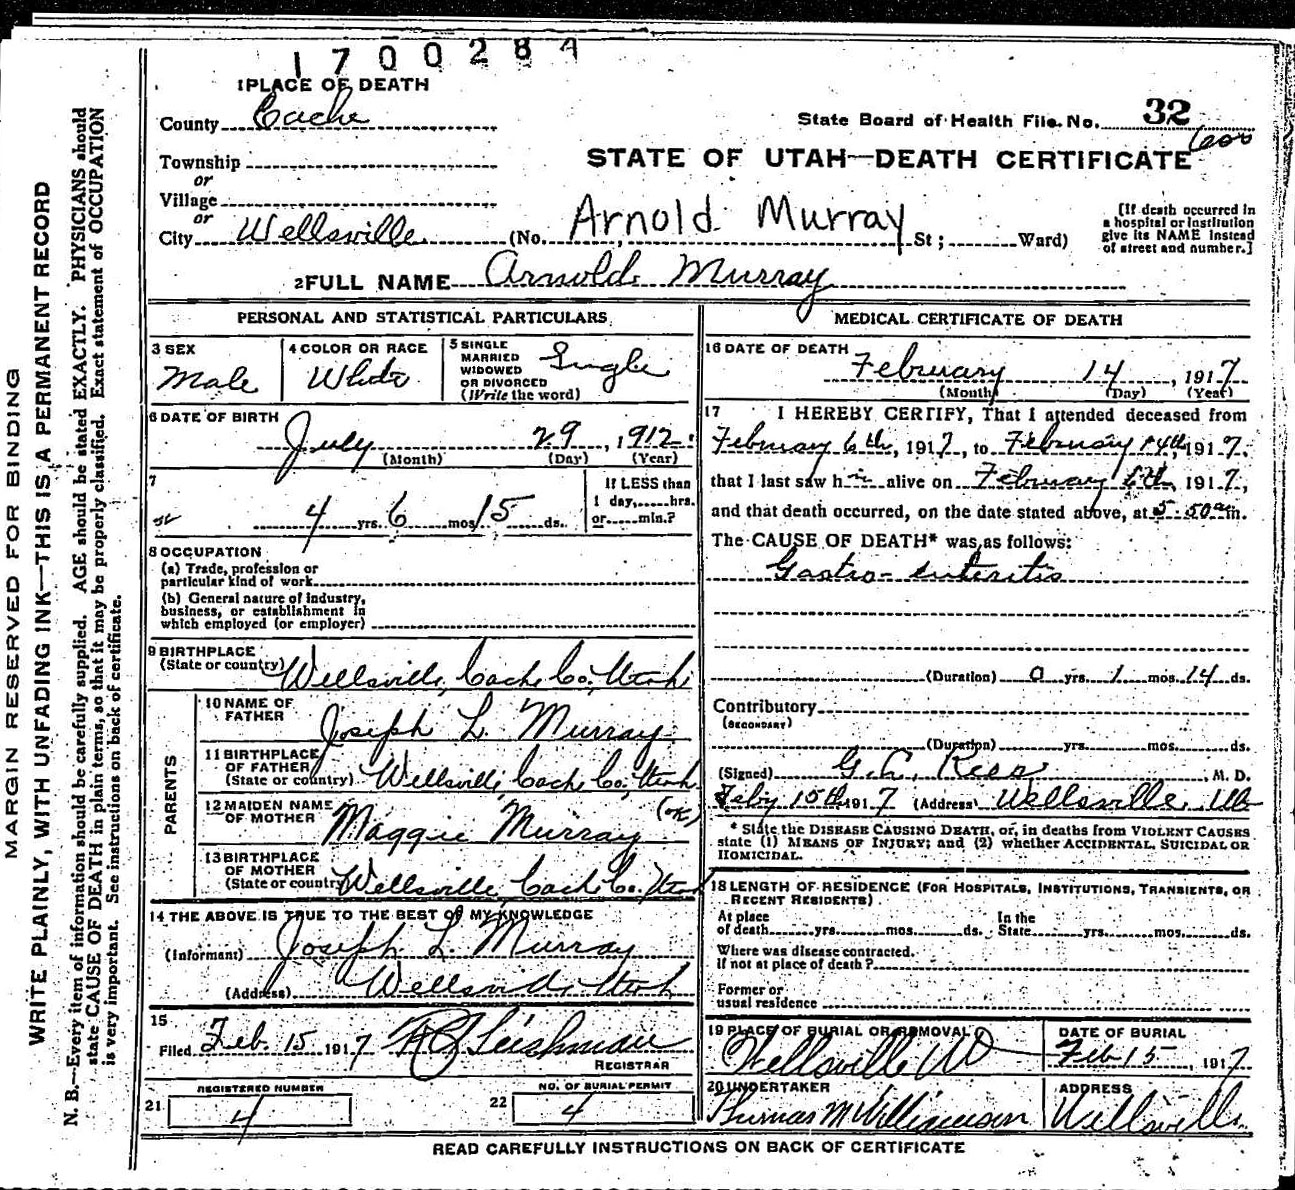 1700284
1 PLACE OF DEATH
County Cache
State Board of Health File No. 32
Township
STATE OF UTAH—DEATH CERTIFICATE
or
Village
or
City Wellsville (No. Arnold Murray St; Ward)
[If death occurred in
a hospital or institution
give its NAME instead
of street and number.]
2 FULL NAME Arnold Murray
PERSONAL AND STATISTICAL PARTICULARS
3 SEX
Male
4 COLOR OR RACE
White
5 SINGLE
MARRIED
WIDOWED
OR DIVORCED
(Write the word)
Single
6 DATE OF BIRTH
July 29, 1912
(Month) (Day) (Year)
7
4 yrs. 6 mos. 15 ds.
If LESS than
1 day,......hrs.
or......min.?
8 OCCUPATION
(a) Trade, profession or
particular kind of work
(b) General nature of industry,
business, or establishment in
which employed (or employer)
9 BIRTHPLACE
(State or country) Wellsville, Cache Co., Utah
PARENTS
10 NAME OF
FATHER Joseph L. Murray
11 BIRTHPLACE
OF FATHER
(State or country) Wellsville, Cache Co., Utah
12 MAIDEN NAME
OF MOTHER Maggie Murray (OK)
13 BIRTHPLACE
OF MOTHER
(State or country) Wellsville, Cache Co., Utah
14 THE ABOVE IS TRUE TO THE BEST OF MY KNOWLEDGE
(Informant) Joseph L. Murray
(Address) Wellsville Utah
15
Filed Feb. 15 1917 Leishman
REGISTRAR
REGISTERED NUMBER
21 4
NO. OF BURIAL PERMIT
22 4
MEDICAL CERTIFICATE OF DEATH
16 DATE OF DEATH
February 14, 1917
(Month) (Day) (Year)
17 I HEREBY CERTIFY, That I attended deceased from
February 6th, 1917, to February 14th, 1917,
that I last saw him alive on February 6th, 1917,
and that death occurred, on the date stated above, at 5:50 a m.
The CAUSE OF DEATH* was as follows:
Gastro-enteritis
(Duration) 0 yrs. 1 mos. 14 ds.
Contributory
(SECONDARY)
(Duration) yrs. mos. ds.
(Signed) G. C. Rees M. D.
Feby 15th 1917 (Address) Wellsville, Ut
* State the DISEASE CAUSING DEATH, or, in deaths from VIOLENT CAUSES
state (1) MEANS OF INJURY; and (2) whether ACCIDENTAL, SUICIDAL OR
HOMICIDAL.
18 LENGTH OF RESIDENCE (FOR HOSPITALS, INSTITUTIONS, TRANSIENTS, OR
RECENT RESIDENTS)
At place
of death......yrs......mos......ds.
In the
State......yrs......mos......ds.
Where was disease contracted.
if not at place of death?
Former or
usual residence
19 PLACE OF BURIAL OR REMOVAL
Wellsville
DATE OF BURIAL
Feb 15, 1917
20 UNDERTAKER
Thomas M Williamson
ADDRESS
Wellsville
READ CAREFULLY INSTRUCTIONS ON BACK OF CERTIFICATE
MARGIN RESERVED FOR BINDING
WRITE PLAINLY, WITH UNFADING INK—THIS IS A PERMANENT RECORD
N. B.—Every item of information should be carefully supplied. AGE should be stated EXACTLY. PHYSICIANS should
state CAUSE OF DEATH in plain terms, so that it may be properly classified. Exact statement of OCCUPATION
is very important. See instructions on back of certificate.